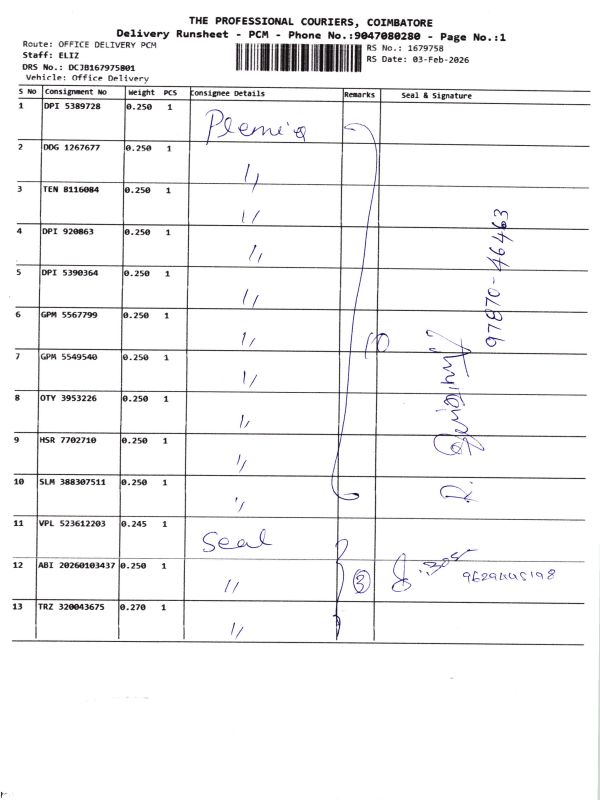 THE PROFESSIONAL COURIERS, COIMBATORE
Delivery Runsheet - PCM - Phone No.:9047080280 - Page No.:1
Route: OFFICE DELIVERY PCM
Staff: ELIZ
DRS No.: DCJB167975801
Vehicle: Office Delivery
RS No.: 1679758
RS Date: 03-Feb-2026
S No Consignment No Weight PCS Consignee Details Remarks Seal & Signature
1 DPI 5389728 0.250 1
2 DDG 1267677 0.250 1 "
3 TEN 8116084 0.250 1 "
4 DPI 920863 0.250 1 "
5 DPI 5390364 0.250 1 "
6 GPM 5567799 0.250 1 "
7 GPM 5549540 0.250 1 "
8 OTY 3953226 0.250 1 "
9 HSR 7702710 0.250 1 "
10 SLM 388307511 0.250 1 "
97870-46463
11 VPL 523612203 0.245 1 Seal
12 ABI 20260103437 0.250 1 " 3
13 TRZ 320043675 0.270 1 "